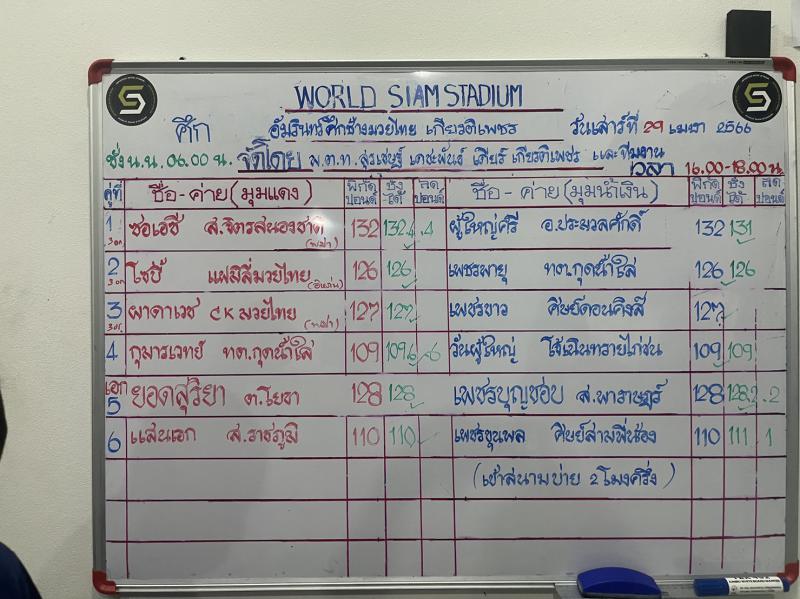 WORLD SIAM STADIUM
ศึก อัมรินทร์ศึกช้างมวยไทย เกียรติเพชร วันเสาร์ที่ 29 เมษา 2566
ชั่ง น.น. 06.00 น. จัดโดย พ.ต.ท. สุรเชษฐ์ เดชะพันธ์ เสี่ยร์ เกียรติเพชร และทีมงาน เวลา 16.00-18.00 น.
คู่ที่ ชื่อ-ค่าย (มุมแดง) พิกัดปอนด์ ชั่งได้ ลดปอนด์ ชื่อ-ค่าย (มุมน้ำเงิน) พิกัดปอนด์ ชั่งได้ ลดปอนด์
1 3ยก ซอเอชี ส.จิตรสนองชาติ (พม่า) 132 132.4 .4 ผู้ใหญ่ศรี อ.ประมวลศักดิ์ 132 131
2 3ยก โซบี้ แฟมิลี่มวยไทย (อิหร่าน) 126 126 เพชรพายุ ทต.กุดน้ำใส 126 126
3 3ยก ผาดาเวช CK มวยไทย (พม่า) 127 127 เพชรขาว ศิษย์ดอนคิงส์ 127
4 กุมารเวทย์ ทต.กุดน้ำใส 109 109.6 .6 วันผู้ใหญ่ โง้เนินทรายไก่ชน 109 109
เอก 5 ยอดสุริยา ต.โยธา 128 128 เพชรบุญชอบ ส.พาราษฎร์ 128 128.2 .2
6 แสนเอก ส.ราชภูมิ 110 110 เพชรขุนพล ศิษย์สามพี่น้อง 110 111 1
(เข้าสนามบ่าย 2 โมงครึ่ง)